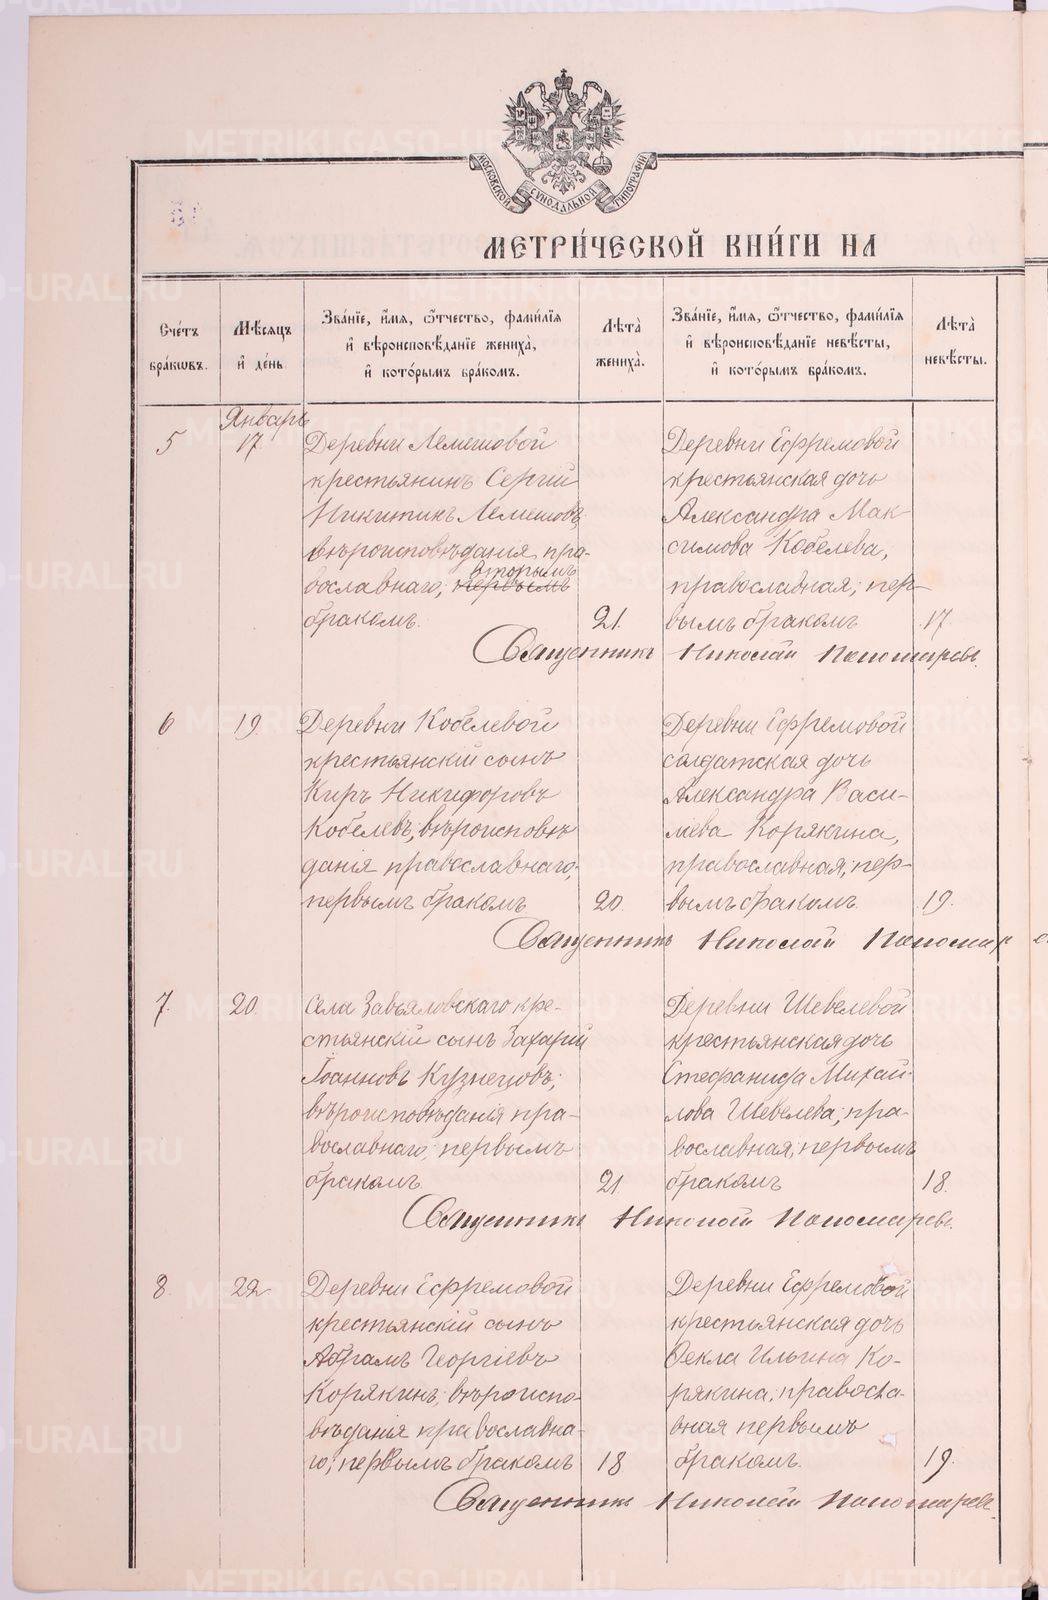 МОСКОВСКОЙ СѴНОДАЛЬНОЙ ТИПОГРАФІИ
МЕТРИ́ЧЕСКОЙ КНИ́ГИ НА
Сче́тъ бра́кѡвъ.
Мѣ́сяцъ и҆ де́нь
Зва́нїе, и҆́мя, ѻ҆́тчество, фами́лїя и҆ вѣроисповѣ́данїе жениха̀, и҆ кото́рымъ бра́комъ.
Лѣта̀ жениха̀.
Зва́нїе, и҆́мя, ѻ҆́тчество, фами́лїя и҆ вѣроисповѣ́данїе невѣ́сты, и҆ кото́рымъ бра́комъ.
Лѣта̀ невѣ́сты.
Январь
5
17
Деревни Лемешовой
крестьянинъ Сергій
Никитинъ Лемешовъ,
вѣроисповѣданія пра-
вославнаго, первымъ вторымъ
бракомъ.
21.
Деревни Ефремовой
крестьянская дочь
Александра Мак-
симова Кобелева,
православная, пер-
вымъ бракомъ
17.
Священникъ Николай Пономаревъ.
6
19.
Деревни Кобелевой
крестьянскій сынъ
Киръ Никифоровъ
Кобелевъ, вѣроисповѣ
данія православнаго,
первымъ бракомъ
20.
Деревни Ефремовой
солдатская дочь
Александра Васи-
льева Корякина,
православная, пер-
вымъ бракомъ.
19.
Священникъ Николай Пономар
7.
20.
Села Завьяловскаго кре-
стьянскій сынъ Захарій
Іоанновъ Кузнецовъ,
вѣроисповѣданія пра-
вославнаго, первымъ
бракомъ.
21
Деревни Шевелевой
крестьянская дочь
Стефанида Михай-
лова Шевелева, пра-
вославная, первымъ
бракомъ
18.
Священникъ Николай Пономаревъ.
8.
22
Деревни Ефремовой
крестьянскій сынъ
Абрамъ Георгіевъ
Корякинъ, вѣроиспо-
вѣданія православна-
го, первымъ бракомъ
18
Деревни Ефремовой
крестьянская дочь
Фекла Ильина Ко-
рякина, правосла-
вная первымъ
бракомъ.
19.
Священникъ Николай Пономаревъ.
METRIKI.GASO-URAL.RU